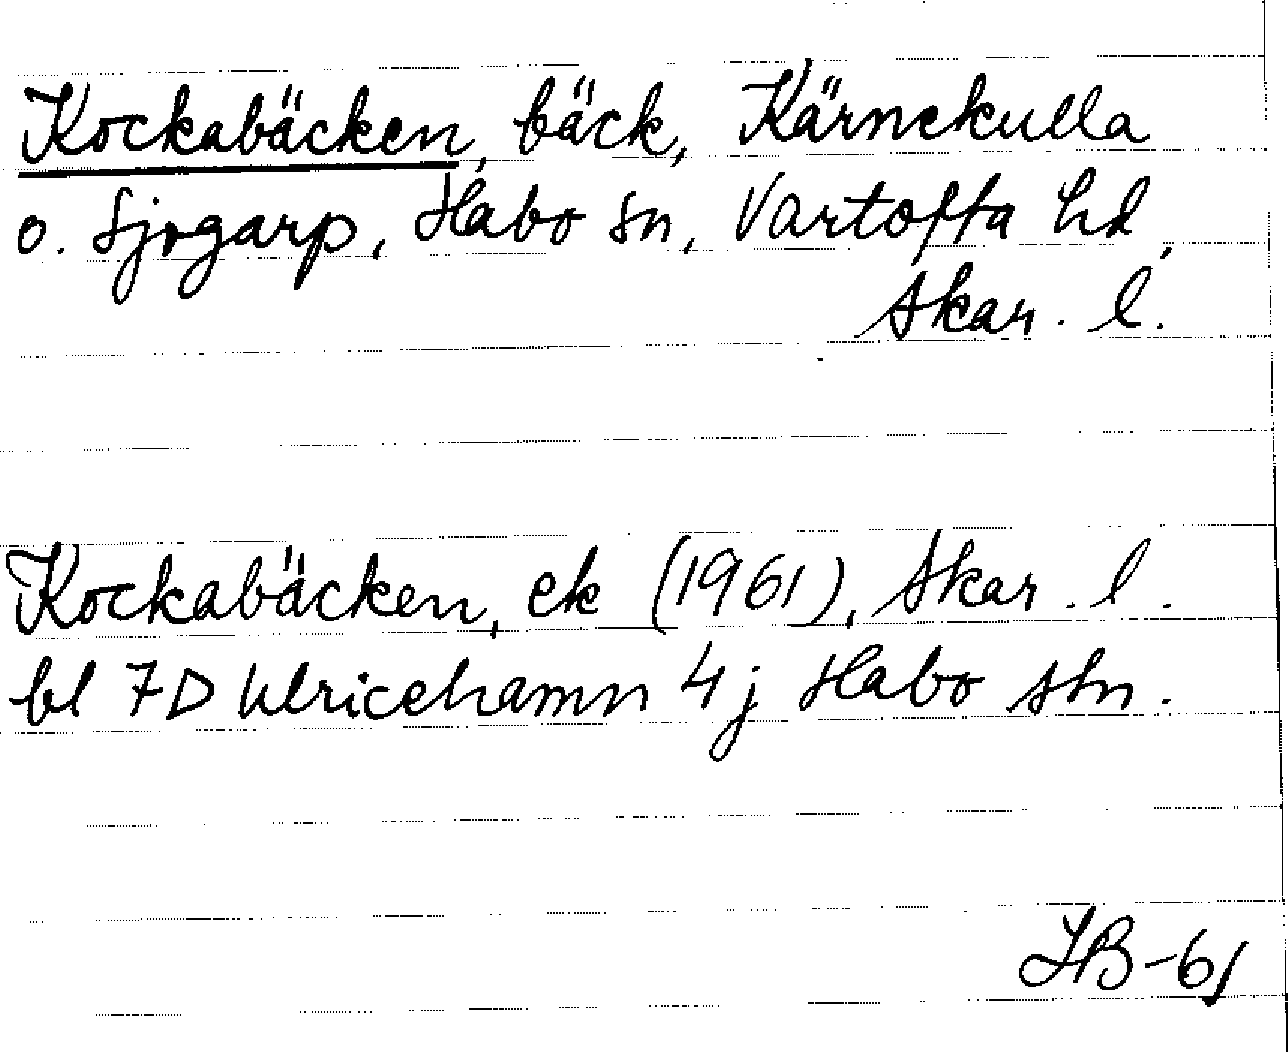 Kockabäcken, bäck, Kärnekulla
o. Sjogarp, Habo sn, Vartofta hd,
Skar. l.
Kockabäcken, ek (1961), Skar. l.
bl 7D Ulricehamn 4j Habo stn.
IB-61